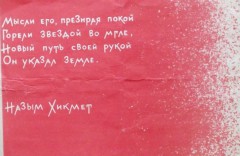 Мысли его, презирая покой
Горели звездой во мгле,
Новый путь своей рукой
Он указал земле.
Назым Хикмет